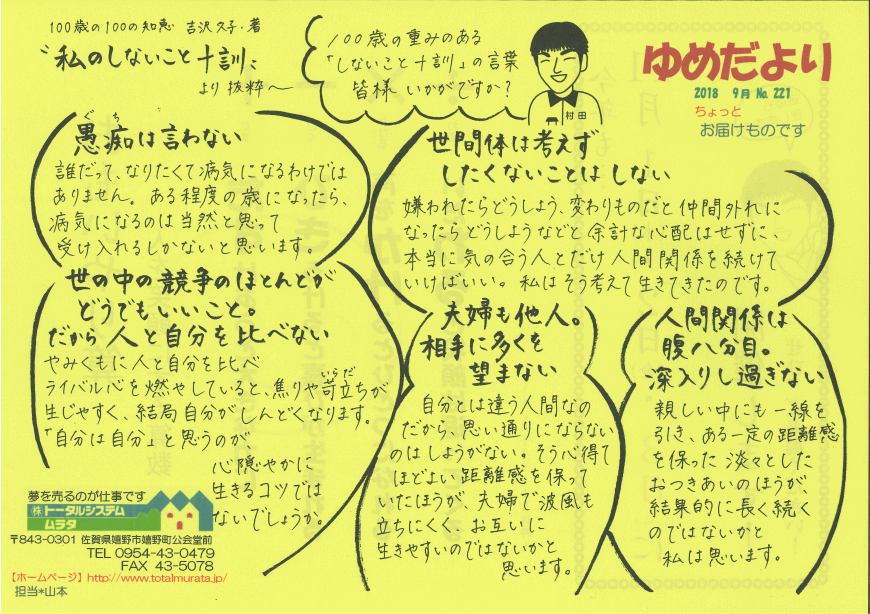 100歳の100の知恵 吉沢久子・著
〝私のしないこと十訓〟
より抜粋〜
100歳の重みのある
「しないこと十訓」の言葉
皆様 いかがですか?
村田
ゆめだより
2018 9月 No.221
ちょっと
お届けものです
ぐち
愚痴は言わない
誰だって、なりたくて病気になるわけでは
ありません。ある程度の歳になったら、
病気になるのは当然と思って
受け入れるしかないと思います。
世間体は考えず
したくないことはしない
嫌われたらどうしよう、変わりものだと仲間外れに
なったらどうしようなどと余計な心配はせずに、
本当に気の合う人とだけ人間関係を続けて
いけばいい。私はそう考えて生きてきたのです。
世の中の競争のほとんどが
どうでもいいこと。
だから人と自分を比べない
やみくもに人と自分を比べ
ライバル心を燃やしていると、焦りや苛立ちが
いらだ
生じやすく、結局自分がしんどくなります。
「自分は自分」と思うのが
心穏やかに
生きるコツでは
ないでしょうか。
夫婦も他人。
相手に多くを
望まない
自分とは違う人間なの
だから、思い通りにならない
のはしようがない。そう心得て
ほどよい距離感を保って
いたほうが、夫婦で波風も
立ちにくく、お互いに
生きやすいのではないかと
思います。
人間関係は
腹八分目。
深入りし過ぎない
親しい中にも一線を
引き、ある一定の距離感
を保った淡々とした
おつきあいのほうが、
結果的に長く続く
のではないかと
私は思います。
夢を売るのが仕事です
㈱トータルシステム
ムラタ
〒843-0301 佐賀県嬉野市嬉野町公会堂前
TEL 0954-43-0479
FAX 43-5078
【ホームページ】http://www.totalmurata.jp/
担当*山本